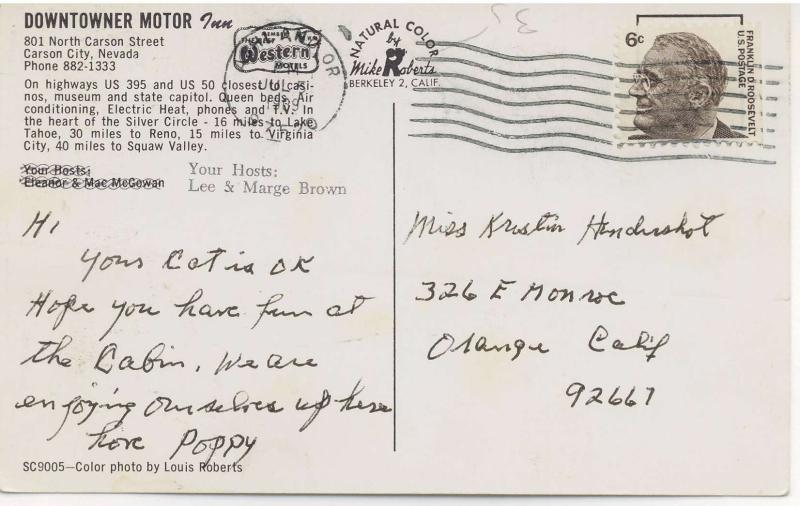 DOWNTOWNER MOTOR Inn
801 North Carson Street
Carson City, Nevada
Phone 882-1333
On highways US 395 and US 50 closest to casi-
nos, museum and state capitol. Queen beds, Air
conditioning, Electric Heat, phones and T.V. In
the heart of the Silver Circle - 16 miles to Lake
Tahoe, 30 miles to Reno, 15 miles to Virginia
City, 40 miles to Squaw Valley.
Your Hosts:
Eleanor & Mac McGowan
Your Hosts:
Lee & Marge Brown
Hi
Your Cat is OK
Hope you have fun at
the Cabin, We are
enjoying ourselves up here
love Poppy
SC9005—Color photo by Louis Roberts
Western
MOTELS
OR
JUL
NATURAL COLOR
by
Mike Roberts
BERKELEY 2, CALIF.
35
6c
FRANKLIN D. ROOSEVELT
U.S. POSTAGE
Miss Kristin Hendershot
326 E Monroe
Orange Calif
92667